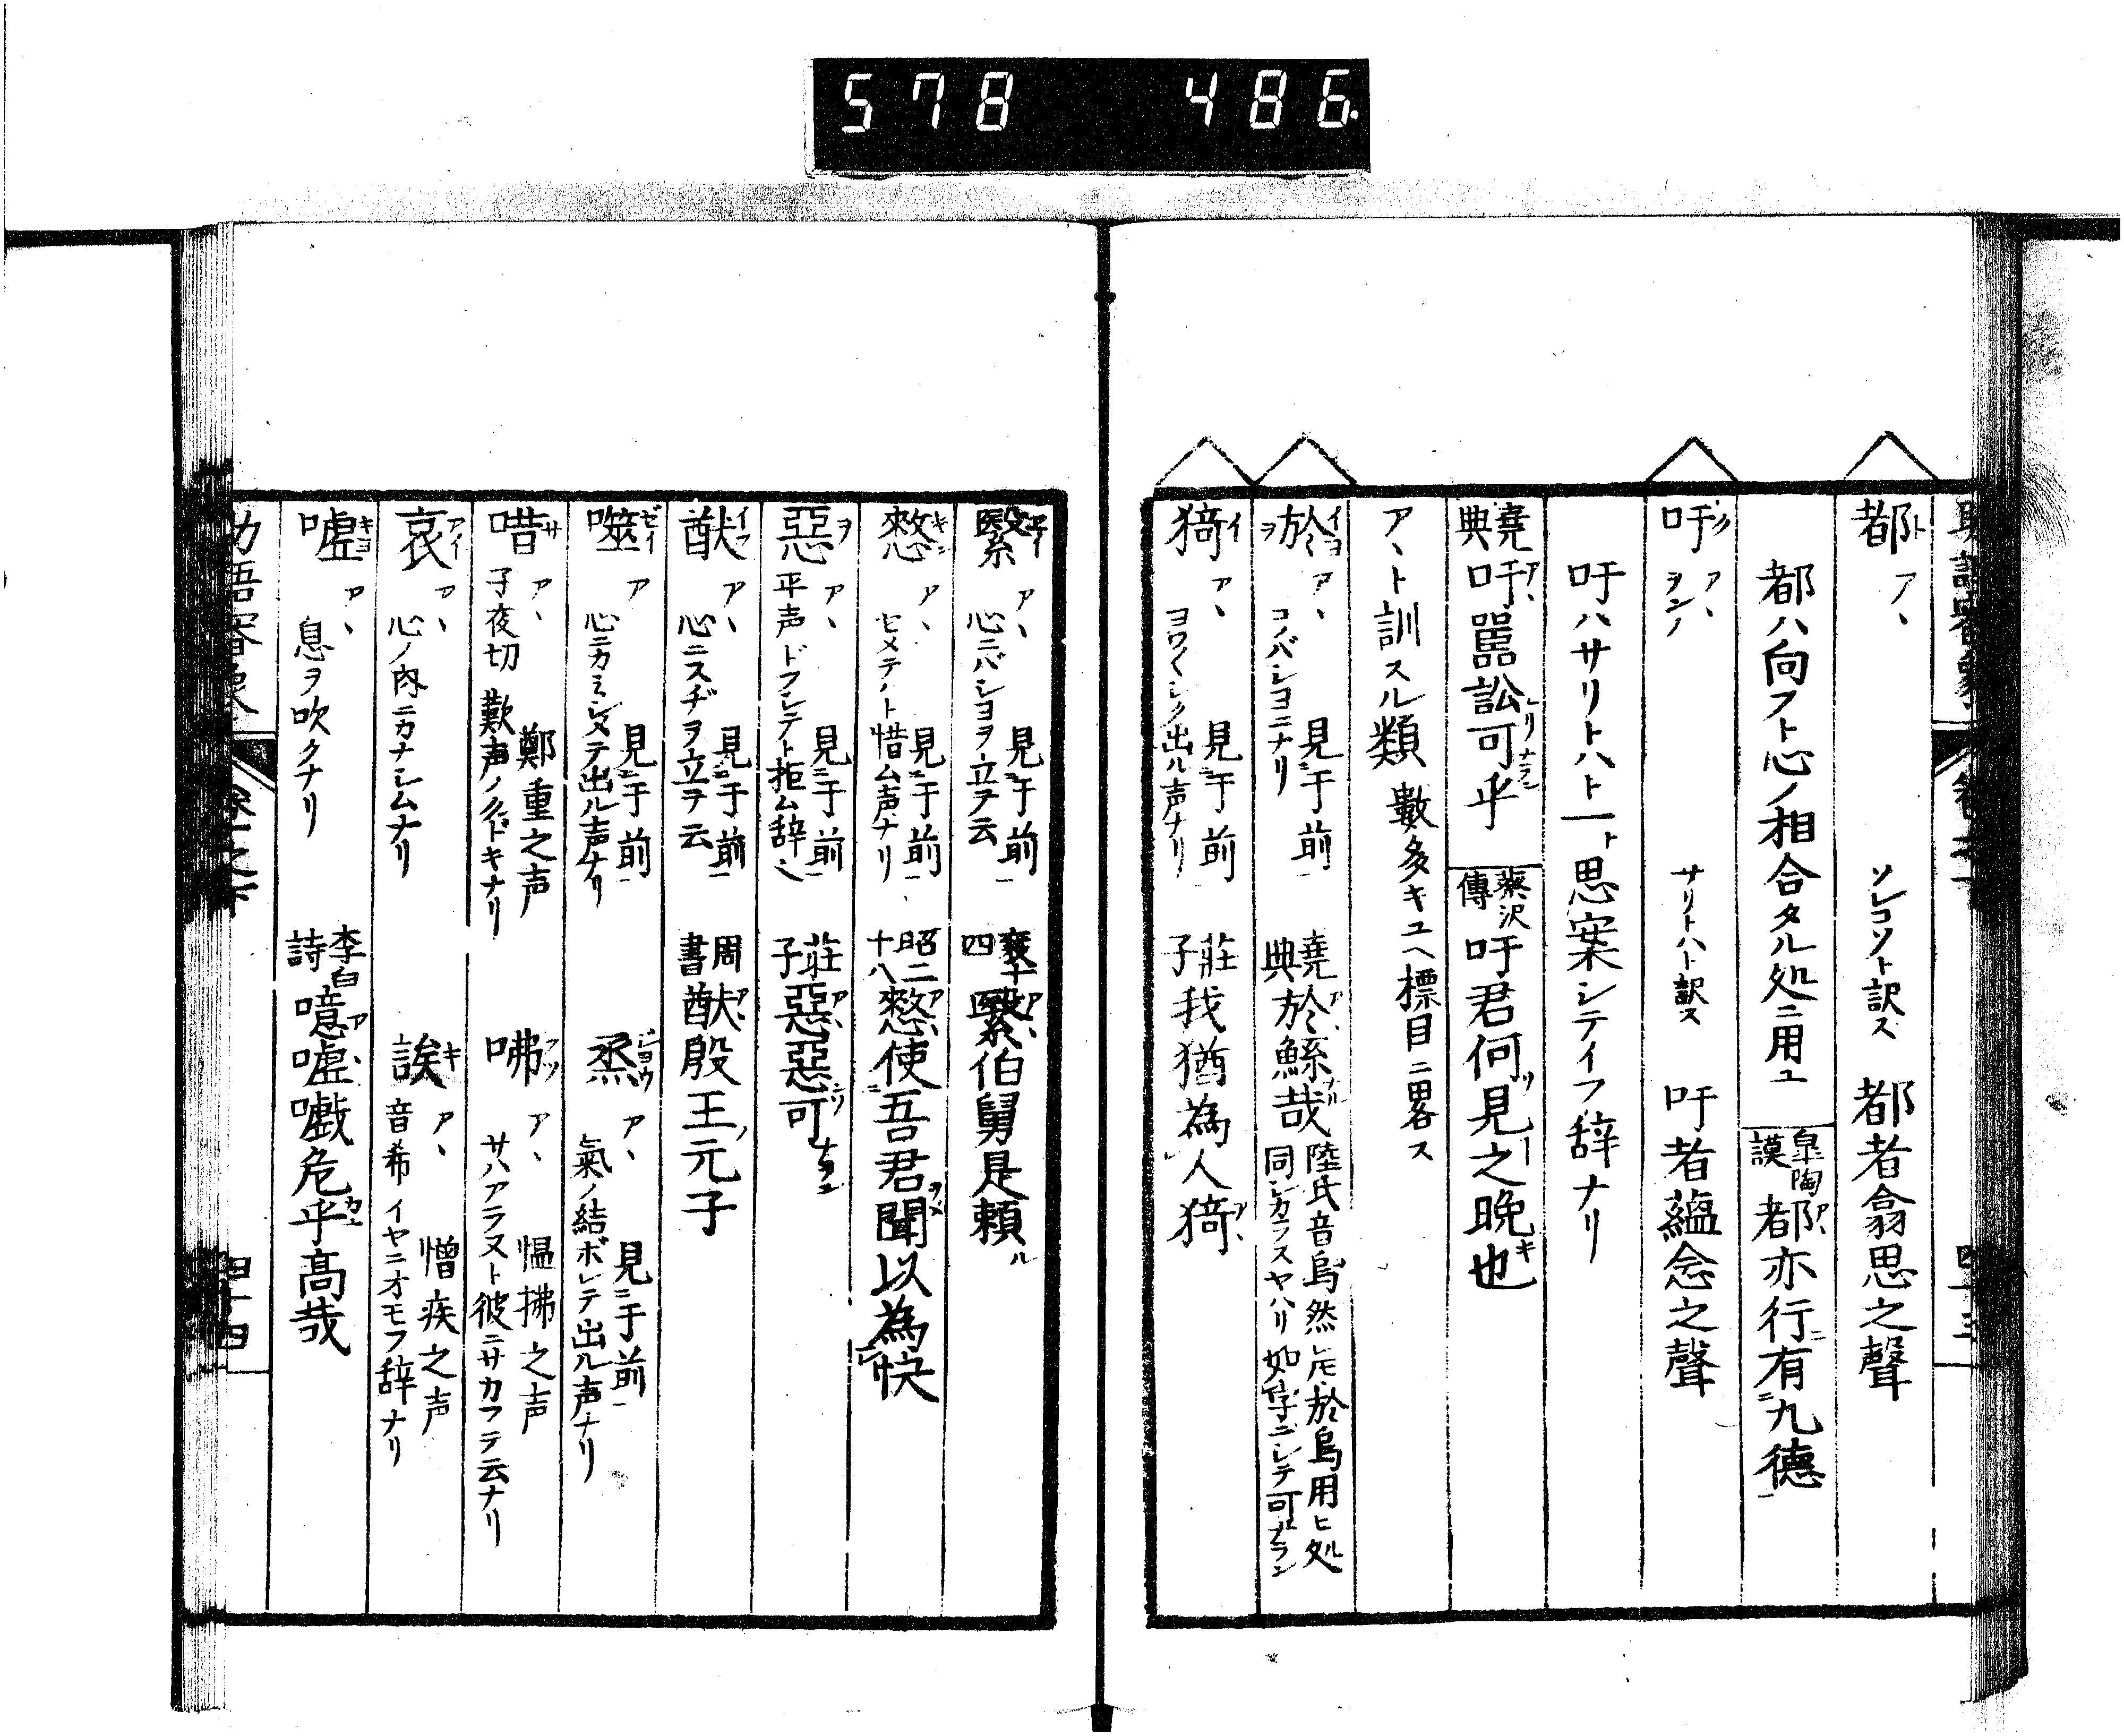 578 486
都 ト アヽ ソレコソト訳ス 都者翕思之聲
都ハ向フト心ノ相合タル処ニ用ユ 皐陶謨 都亦行有九德
吁 ク アヽ ヲンノ サリトハト訳ス 吁者蘊念之聲
吁ハサリトハト一ト思案シテイフ辞ナリ
堯典 吁嚚訟可乎 蔡沢傳 吁君何見之晩也
アヽト訓スル類 數多キユヘ標目ニ畧ス
於 イヨ ヲ アヽ コノバシヨニナリ 見于前 堯典 於鯀哉 陸氏音烏然𪜈於烏用ヒ処同シカラスヤハリ如字ニシテ可ナラン
猗 イ アヽ ヨワ〱シク出ル声ナリ 見于前 莊子 我猶為人猗
繄 エイ アヽ 心ニバシヨヲ立ヲ云 見于前 襄十四 繄伯舅是頼
憖 キン アヽ セメテノト惜ム声ナリ 見于前 昭二十八 憖使吾君聞以為快
惡 ヲ アヽ 平声 ドフシテト拒ム辞 見于前 莊子 惡惡可
猷 イフ アヽ 心ニスヂヲ立ヲ云 見于前 周書 猷殷王元子
噬 ゼイ アヽ 心ニカミシメテ出ル声ナリ 見于前 烝 アヽ 氣ノ結ボレテ出ル声ナリ 見于前
唶 サ アヽ 子夜切 歎声ノクドキナリ 鄭重之声 咈 アヽ サハアラヌト彼ニサカフテ云ナリ 愠拂之声
哀 アイ アヽ 心ノ内ニカナシムナリ 誒 キ アヽ 音希 イヤニオモフ辞ナリ 憎疾之声
嘘 キヨ アヽ 息ヲ吹クナリ 李白詩 噫嘘嚱危乎高哉
四十四